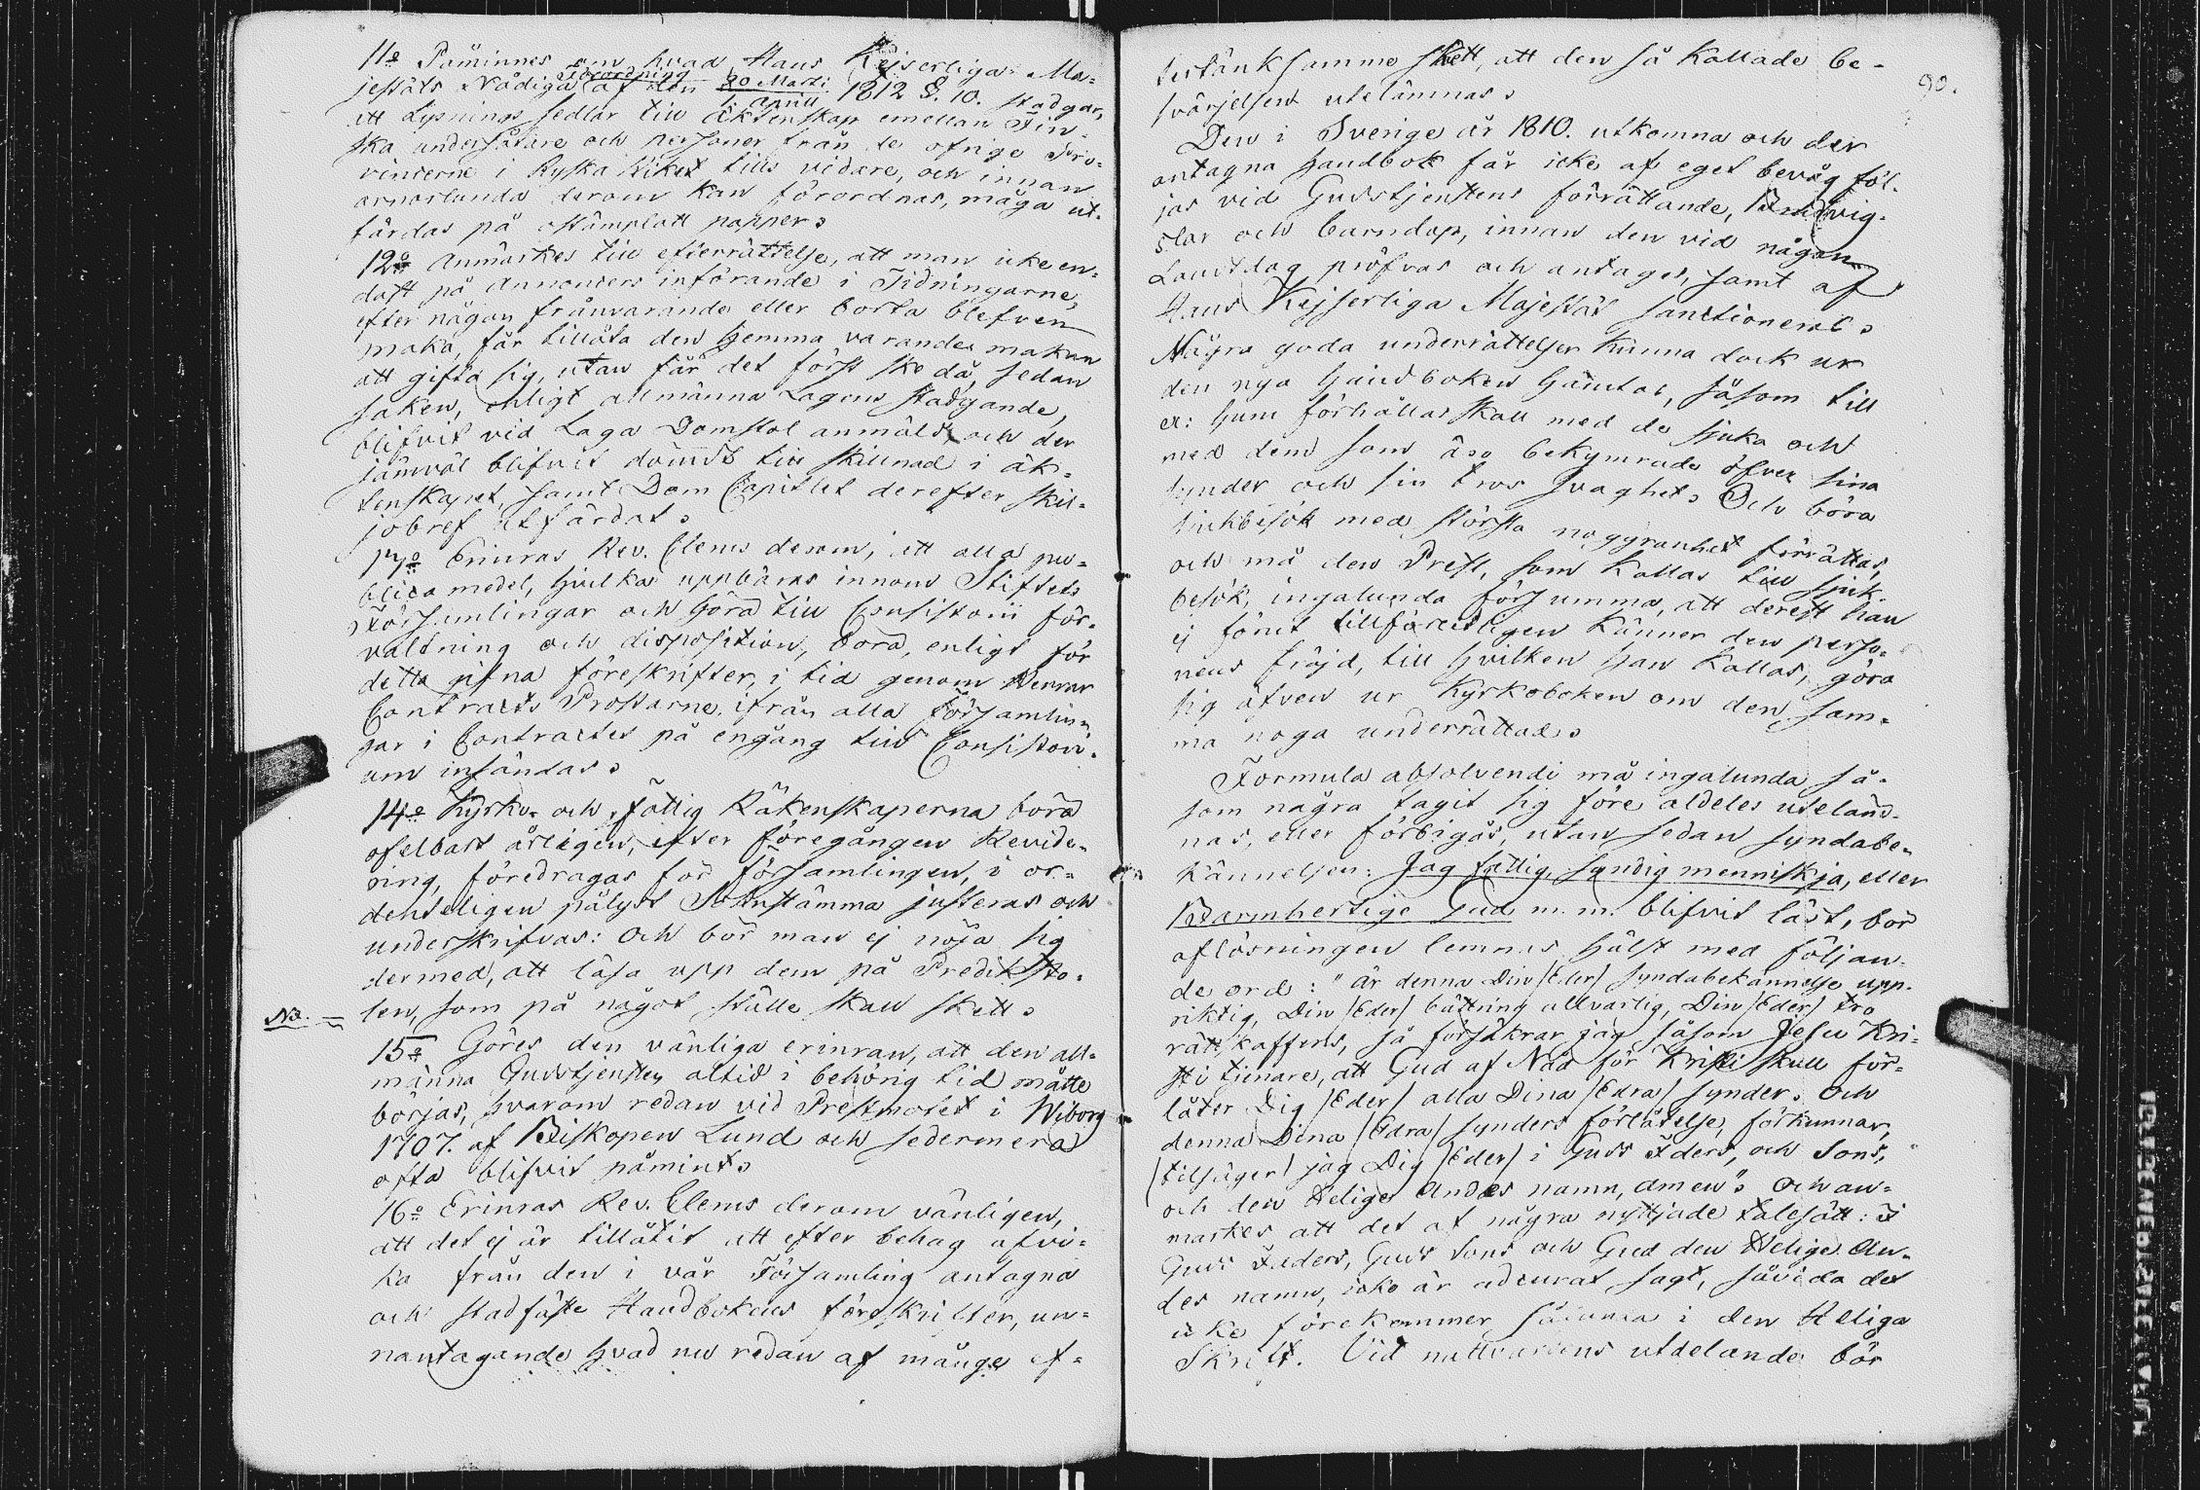 11o Påminnes om hvad Hans Kejserliga Ma-
jestäts Nådiga Förordning af den 20 Martii / 1 April 1812 §. 10. stadgar,
att Lysnings sedlar till äktenskap emellan Fin-
ska undersåtare och personer från de öfrige Pro-
vinserne i Ryska Riket tills vidare, och innan
annorlunda derom kan förordnas, måga ut-
färdas på ostämplatt papper.
12o Anmärkes till efterrättelse, att man icke en-
dast på Annonsers införande i Tidningarne,
efter någon frånvarande eller borta blefven
maka, får tillåta den hemma varande makan
att gifta sig, utan får det först ske då, sedan
saken, enligt allmänna Lagens stadgande,
blifvit vid Laga Domstol anmäld och der
jämväl blifvit dömdt till skillnad i äk-
tenskapet, samt Dom Capitlet derefter skil-
jobref utfärdat.
13o Erinras Rev. Clerus derom, att alla pu-
blica medel, hvilka uppbäras innom Stiftets
Församlingar och höra till Consistorii för-
valtning och disposition, böra, enligt för
detta gifna föreskrifter, i tid genom Herrar
Contracts Prostarne, ifrån alla Församlin-
gar i Contractet på engång till Consistori-
um insändas.
14o Kyrko- och fattig Räkenskaperna böra
ofelbart årligen, efter föregången Revide-
ring, föredragas för församlingen, i or-
denteligen pålyst Soknstämma justeras och
underskrifvas: Och bör man ej nöja sig
dermed, att läsa upp dem på Prediksto-
NB. = len, som på något ställe skall skett.
15o Göres den vänliga erinran, att den all-
männa Gudstjensten altid i behörig tid måtte
börjas, hvarom redan vid Prestmötet i Wiborg
1707. af Biskopen Lund och sedermera
ofta blifvit påmint.
16o Erinras Rev. Clerus derom vänligen,
att det ej är tillåtit att efter behag afvi-
ka från den i vår Församling antagna
och stadfäste Handbokens föreskrifter, un-
nantagande hvad nu redan af månge ef-
90.
tertänksamme skett, att den så kallade be-
svärjelsen utelämnas.
Den i Sverige år 1810. utkomna och der
antagna handbok får icke af eget bevåg föl-
jas vid Gudstjenstens förrättande, Brudvig-
slar och barndop, innan den vid någon
Landtdag pröfvas och antages, samt af
Hans Kejserliga Majestät sanctioneras.
Några goda underrättelser kunna dock ur
den nya handboken hämtas, såsom till
ex: huru förhållas skall med de sjuka och
med dem som äro bekymrade öfver sina
synder och sin tros svaghet. Och böra
sjukbesök med största noggranhet förrättas,
och må den Prest, som kallas till sjuk-
besök, ingalunda försumma, att derest han
ej förut tillförlitligen känner den perso-
nens fräjd, till hvilken han kallas, göra
sig äfven ur Kyrkoboken om den sam-
ma noga underrättad.
Formula absolvendi må ingalunda så-
som några tagit sig före aldeles uteläm-
nas, eller förbigås, utan sedan syndabe-
kännelsen: Jag fattig syndig menniskja, eller
Barmhertige Gud m.m. blifvit läst, bör
aflösningen lemnas, hälst med följan-
de ord: "är denna Din /Eder/ syndabekännelse upp-
riktig, Din /Eder/ bättring allvarlig, Din /Eder/ tro
rättskaffens, så försäkrar jag, såsom Jesu Kri-
sti tjenare, att Gud af Nåd för Kristi skull för-
låter Dig /Eder/ alla Dina /Edra/ synder. Och
denna Dina /Edra/ synders förlåtelse, förkunnar,
(tillsäger) jag Dig /Eder/ i Guds Faders, och Sons,
och den Helige Andes namn, amen". Och an-
märkes att det af några nyttjade talesätt: I
Guds Faders, Guds Sons och Gud den Helige An-
des namn, icke är adcurat sagt, såvida det
icke förekommer såsom i den Heliga
Skrift. Vid nattvardens utdelande bör